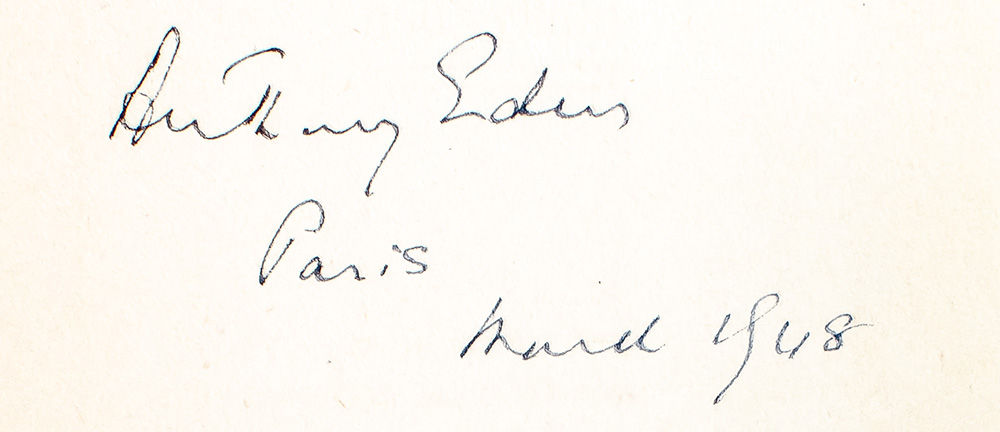 Anthony Eden
Paris
March 1948